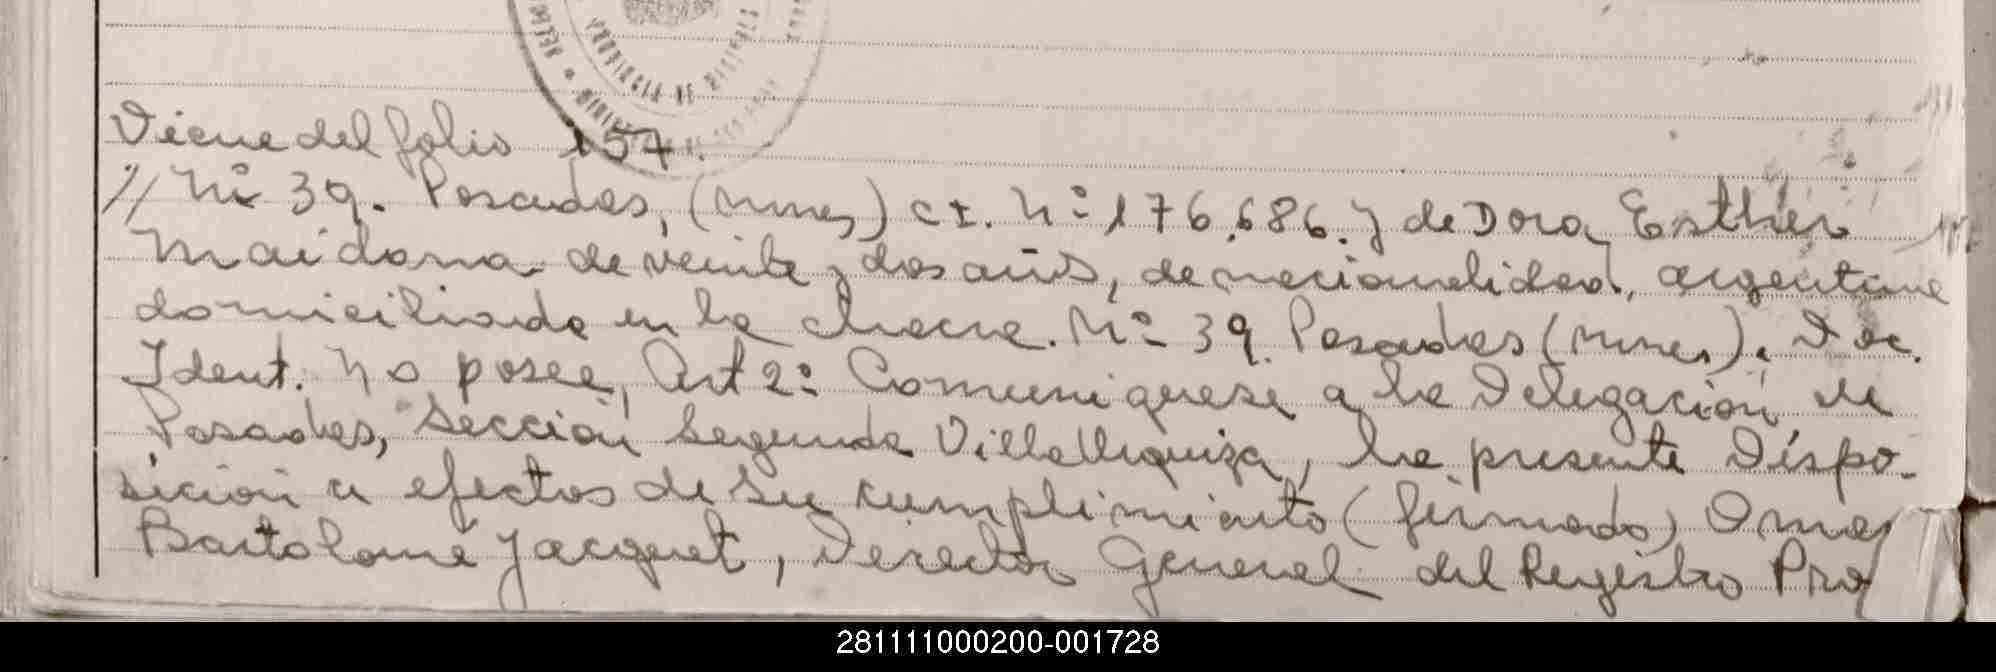 Viene del folio 157.
// Nº 39. Posadas, (Mnes) C.I. Nº 176.686. y de Dora Esther
Maidana de veinte y dos años, de nacionalidad, argentina
domiciliada en la chacra. Nº 39. Posadas (Mnes). Doc.
Ident. No posee, Art 2º Comuniquese a la Delegación de
Posadas, Sección Segunda Villa Urquiza, la presente Dispo-
sicion a efectos de su cumplimiento (firmado) Omar
Bartolome Jacquet, Director General del Registro Pro
281111000200-001728